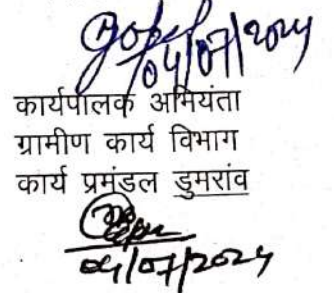 04/07/2024
कार्यपालक अभियंता
ग्रामीण कार्य विभाग
कार्य प्रमंडल डुमरांव
04/07/2024